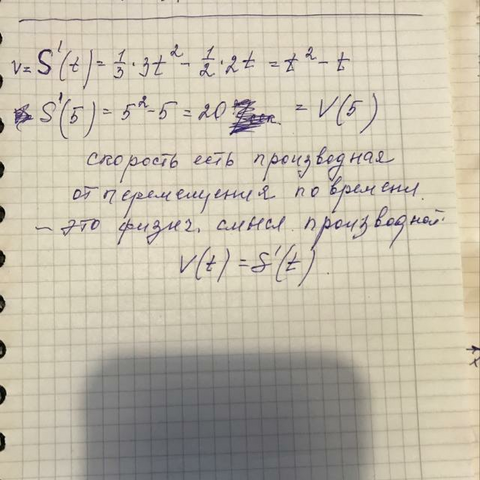 v = S'(t) = 1/3 · 3t² - 1/2 · 2t = t² - t
S'(5) = 5² - 5 = 20 = V(5)
скорость есть производная
от перемещения по времени
- это физич. смысл производной.
V(t) = S'(t).
x